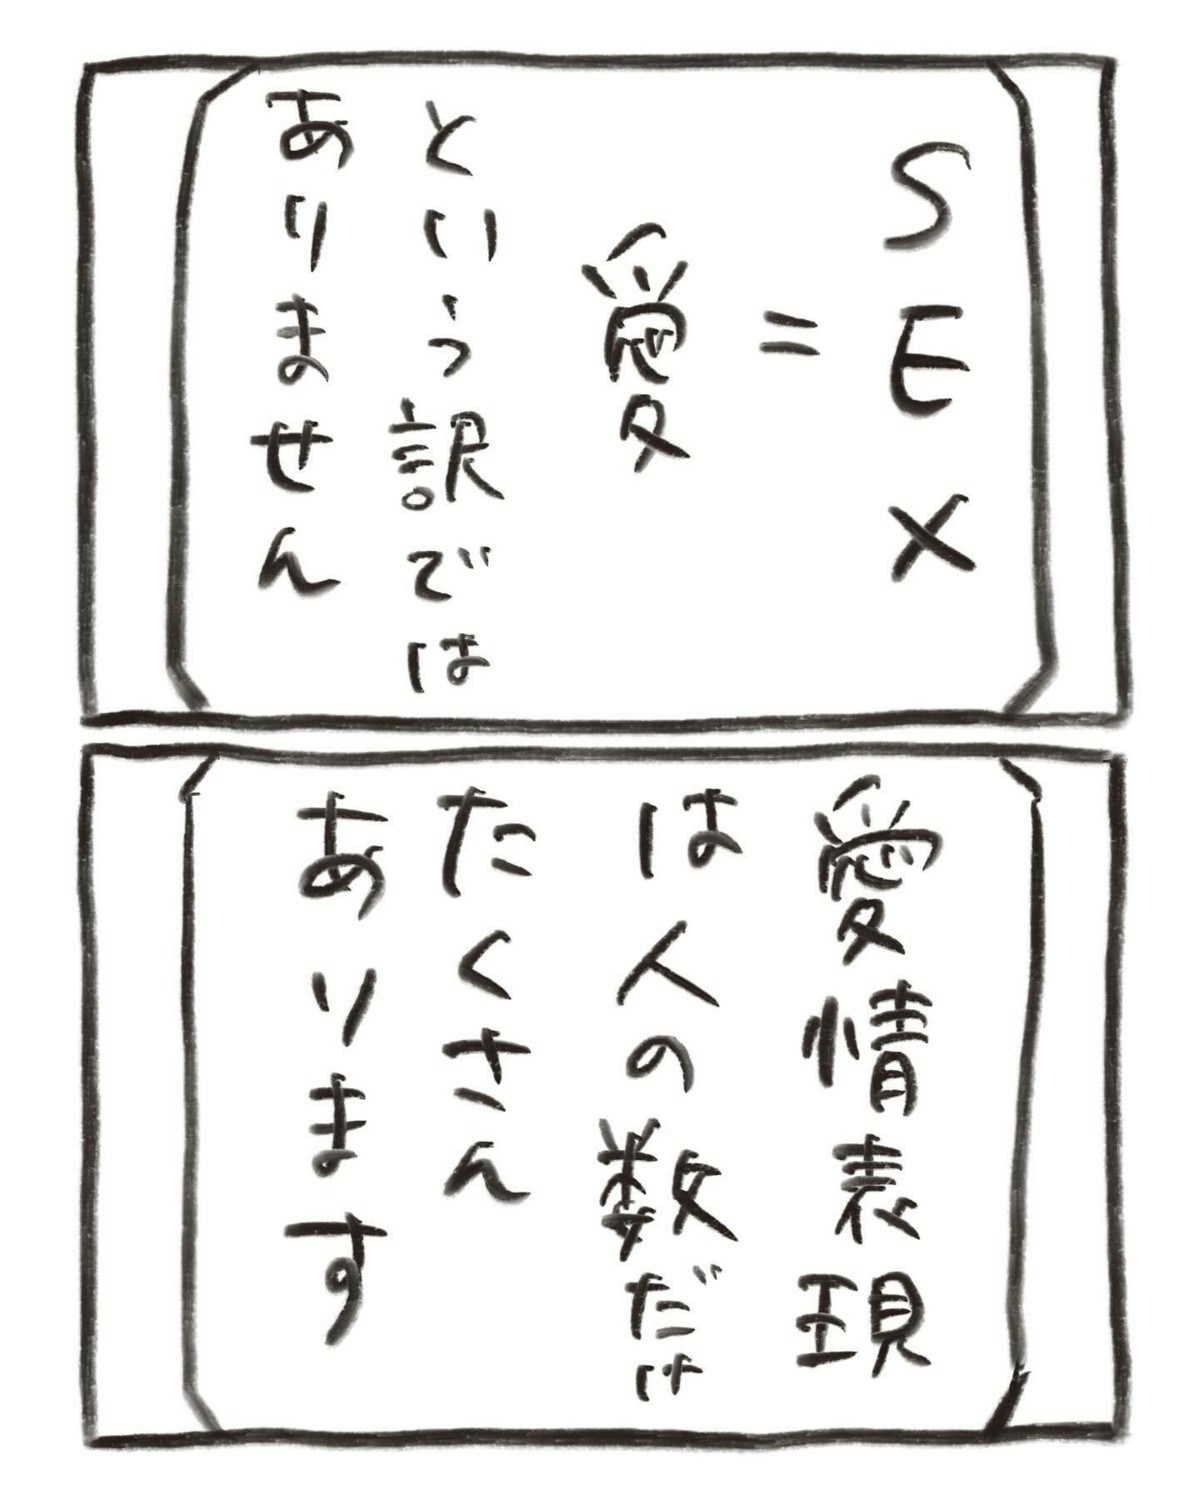 SEX
=
愛
という訳では
ありません
愛情表現
は人の数だけ
たくさん
あります